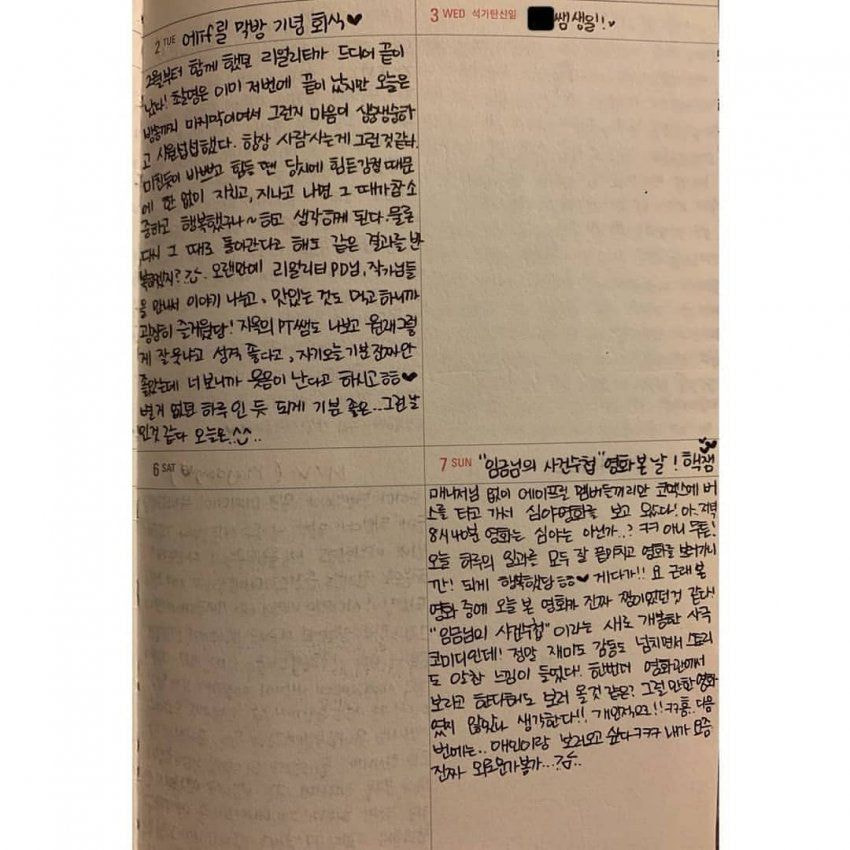 2 TUE 에이f릴 막방 기념 회식♥
2월부터 함께 했던 리얼리티가 드디어 끝이
났다! 촬영은 이미 저번에 끝이 났지만 오늘은
방송까지 마지막이어서 그런지 마음이 싱숭생숭하
고 시원섭섭했다. 항상 사람 사는게 그런것같다.
미친듯이 바쁘고 힘들 땐 당시에 힘든감정 때문
에 한 없이 지치고, 지나고 나면 그 때가 참 소
중하고 행복했구나~ 하고 생각하게 된다. 물론
다시 그 때로 돌아간다고 해도 같은 결과를 반
복하겠지? 오랜만에 리얼리티 PD님, 작가님들
을 만나서 이야기 나누고, 맛있는 것도 먹고 하니까
굉장히 즐거웠당! 지목의 PT쌤도 나보고 원래 그렇
게 잘 웃냐고 성격 좋다고, 자기 오늘 기분 진짜 안
좋았는데 너 보니까 웃음이 난다고 하시고 ㅎㅎ♥
별거 없던 하루 인 듯 되게 기분 좋은..그런 날
인것 같다 오늘은 ^^..
3 WED 석가탄신일 쌤 생일!!♥
6 SAT
7 SUN "임금님의 사건수첩" 영화 본 날! 핵잼
매니저님 없이 에이프릴 멤버들끼리만 코엑스에 버
스를 타고 가서 심야영화를 보고 왔다! 아. 저녁
8시 40분 영화는 심야는 아닌가..? ㅋㅋ 아니 무튼!
오늘 하루의 일과를 모두 잘 끝마치고 영화를 보러가니
깐! 되게 행복했당 ㅎㅎ♥ 게다가!! 요 근래 본
영화 중에 오늘 본 영화가 진짜 짱이었던것 같다!
"임금님의 사건수첩" 이라는 새로 개봉한 사극
코미디인데! 정말 재미도 감동도 넘치면서 스토리
도 알찬 느낌이 들었다! 한번더 영화관에서
보라고 한다해도 보러 올것 같은? 그럴 만한 영화
였지 않았나 생각한다!! 개인적으로!! ㅋㅋ홍. 다음
번에는.. 애인이랑 보러오고 싶다ㅋㅋㅋ 내가 요즘
진짜 외로운가봉가...